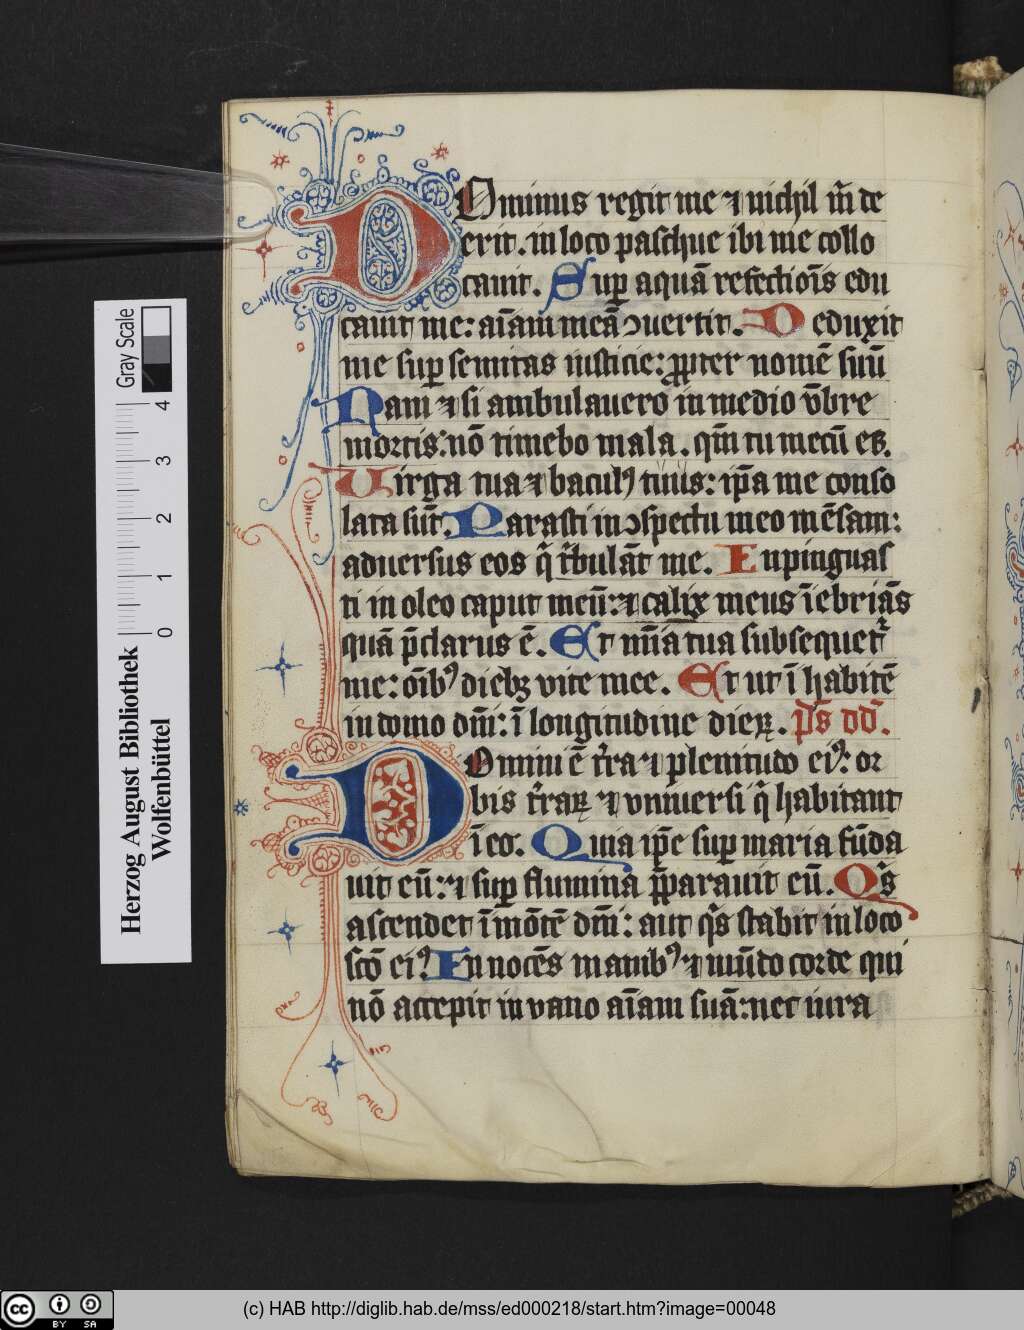 Dominus regit me ⁊ nichil m̅ de
erit. in loco paschue ibi me collo
cauit. Sup̲ aquā refectiōis edu
cauit me: aīam meā ↄuertit. Deduxit
me sup̲ semitas iusticie: p̲p̲ter nomē suū
Nam ⁊ si ambulauero in medio v̅bre
mortis: nō timebo mala. qm̅ tu mecū es.
Virga tua ⁊ baculꝰ tuus: ip̅a me conso
lata sūt. Parasti in ↄspectu meo mēsam:
aduersus eos q̇ tͥbulāt me. Inpinguas
ti in oleo caput meū: ⁊ calix meus īebriās
quā p̅clarus ē. Et m̅ia tua subsequetͬ
me: oīb⁹ dieb⁊ vite mee. Et ut ī habitē
in domo dn̅i: ī longitudine dieꝝ. ps̅ dd̅.
Domini ē tͬra ⁊ plenitudo eiꝰ: or
bis tͬraꝝ ⁊ vniuersi q̇ habitant
ī eo. Quia ip̅e sup̲ maria fūda
uit eū: ⁊ sup̲ flumina p̅parauit eū. Qͥs
ascendet ī mōtē dn̅i: aut qͥs stabit in loco
scō eiꝰ. Innocēs manibꝰ ⁊ mūdo corde qui
nō accepit in vano aīam suā: nec iura
Herzog August Bibliothek
Wolfenbüttel
Gray Scale
0 1 2 3 4
cc BY SA
(c) HAB http://diglib.hab.de/mss/ed000218/start.htm?image=00048